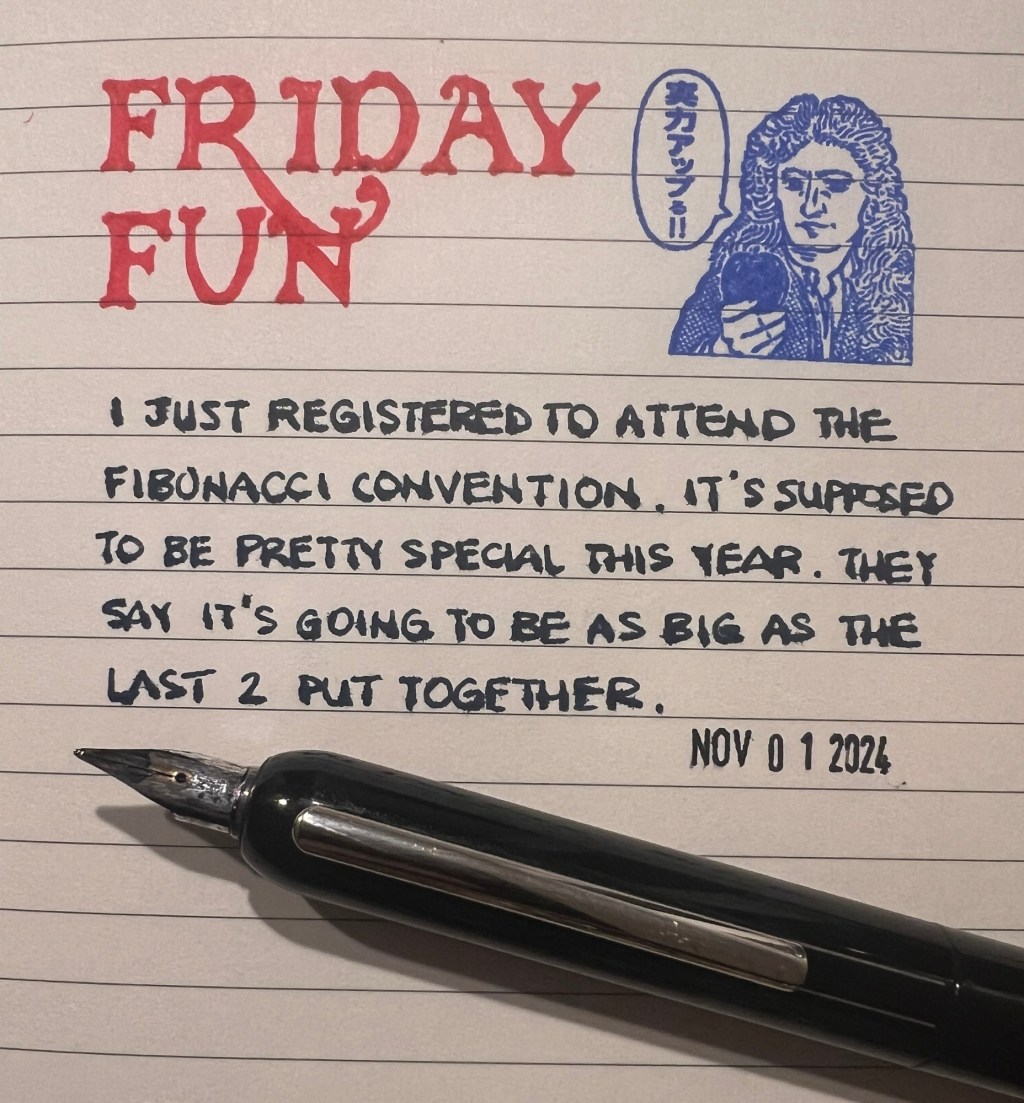 FRIDAY
FUN
実力アップ!!
I JUST REGISTERED TO ATTEND THE
FIBONACCI CONVENTION. IT'S SUPPOSED
TO BE PRETTY SPECIAL THIS YEAR. THEY
SAY IT'S GOING TO BE AS BIG AS THE
LAST 2 PUT TOGETHER.
NOV 01 2024